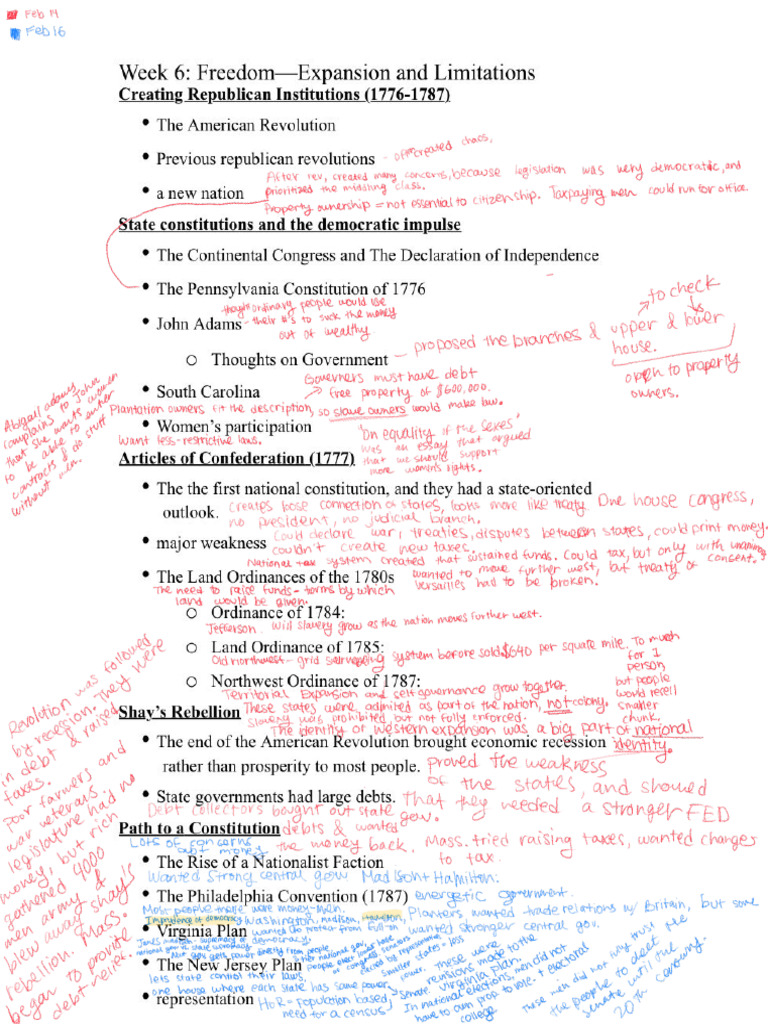 Feb 14
Feb 16
Week 6: Freedom—Expansion and Limitations
Creating Republican Institutions (1776-1787)
• The American Revolution
• Previous republican revolutions - often created chaos.
After rev, created many concerns, because legislation was very democratic, and
• a new nation prioritized the middling class.
Property ownership = not essential to citizenship. Taxpaying men could run for office.
State constitutions and the democratic impulse
• The Continental Congress and The Declaration of Independence
• The Pennsylvania Constitution of 1776
thought ordinary people would use
• John Adams - their #'s to suck the money
out of wealthy
o Thoughts on Government - proposed the branches & upper & lower
house.
to check
open to property
owners.
Governers must have debt
• South Carolina free property of $600,000.
Plantation owners fit the description, so slave owners would make law.
• Women's participation
Want less-restrictive laws.
"On equality if the sexes"
was an essay that argued
that we should support
more women's rights.
Abigail adams
complains to John
that she wants women
to be able to enter
contracts & do stuff
without men.
Articles of Confederation (1777)
• The the first national constitution, and they had a state-oriented
outlook. Creates loose connection of states, looks more like treaty. One house congress,
no president, no judicial branch.
• major weakness Could declare war, treaties, disputes between states, could print money.
couldn't create new taxes.
National tax system created that sustained funds. Could tax, but only with unanimous
consent.
• The Land Ordinances of the 1780s wanted to move further west, but treaty of
Versailles had to be broken.
The need to raise funds - terms by which
land would be given.
o Ordinance of 1784:
Jefferson. Will slavery grow as the nation moves further west.
o Land Ordinance of 1785:
Old northwest - grid surveying system before sold. $640 per square mile. To much
for 1
person
but people
would resell
smaller
chunk.
o Northwest Ordinance of 1787:
Territorial Expansion and self governance grow together.
These states were admited as part of the nation, not colony.
slavery was prohibited, but not fully enforced.
The identity of western expansion was a big part of national
identity.
Shay's Rebellion
• The end of the American Revolution brought economic recession
rather than prosperity to most people. proved the weakness
of the states, and showed
• State governments had large debts. That they needed a stronger FED
gov.
Debt collectors bought out state
debts & wanted
the money back. Mass. tried raising taxes, wanted changes
to tax.
Revolution was followed
by recession. They were
in debt & raised
taxes.
Poor farmers and
war veterans
legislature had no
money, but rich
gathered 4000
men army &
blew away shay's
rebellion. Mass.
began to provide
debt relief.
Path to a Constitution
Lots of concerns
abt money
• The Rise of a Nationalist Faction
Wanted strong central gov Madison + Hamilton:
• The Philadelphia Convention (1787) energetic government.
Most people there were money-men.
Planters wanted trade relations w/ Britain, but some
wanted stronger central gov.
Impotence of democracy Washington, madison, Hamilton,
• Virginia Plan wanted to protect from full-on
democracy.
• The New Jersey Plan
lets state control their laws,
one house where each state has same power.
smaller states = lost
power. These were
revisions made to the
virginia plan.
• representation HoR = population based,
need for a census
In national elections, men did not
have to own prop to vote. + electoral
college
These men did not fully trust the
the people to elect
senate until the
20th century.